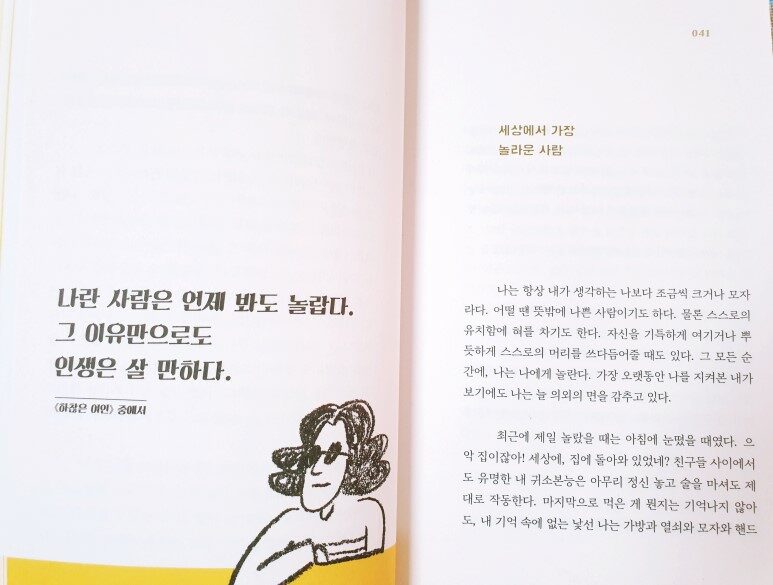 나란 사람은 언제 봐도 놀랍다.
그 이유만으로도
인생은 살 만하다.
<하찮은 야인> 중에서
041
세상에서 가장
놀라운 사람
나는 항상 내가 생각하는 나보다 조금씩 크거나 모자
라다. 어떨 땐 뜻밖에 나쁜 사람이기도 하다. 물론 스스로의
유치함에 혀를 차기도 한다. 자신을 기특하게 여기거나 뿌
듯하게 스스로의 머리를 쓰다듬어줄 때도 있다. 그 모든 순
간에, 나는 나에게 놀란다. 가장 오랫동안 나를 지켜본 내가
보기에도 나는 늘 의외의 면을 감추고 있다.
최근에 제일 놀랐을 때는 아침에 눈떴을 때였다. 으
악 집이잖아! 세상에, 집에 돌아와 있었네? 친구들 사이에서
도 유명한 내 귀소본능은 아무리 정신 놓고 술을 마셔도 제
대로 작동한다. 마지막으로 먹은 게 뭔지는 기억나지 않아
도, 내 기억 속에 없는 낯선 나는 가방과 열쇠와 모자와 핸드